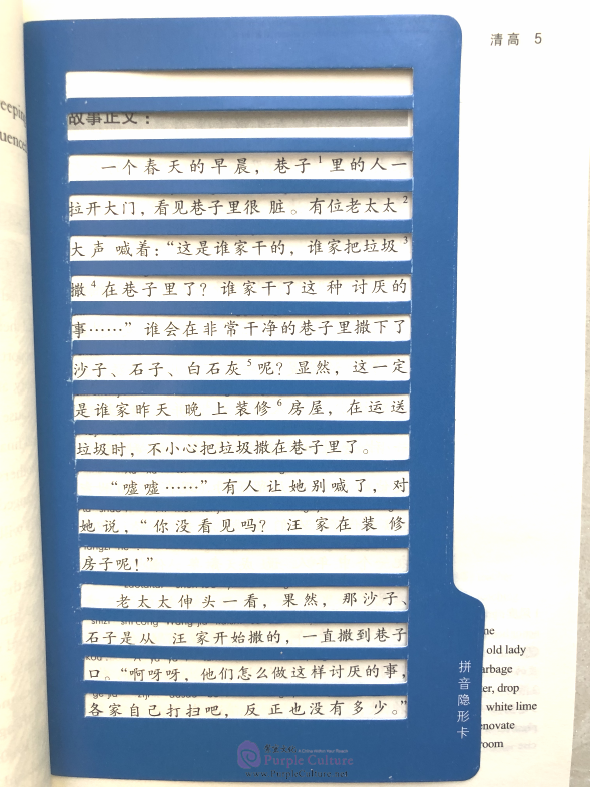 清高 5
故事正文：
一个春天的早晨，巷子1里的人一
拉开大门，看见巷子里很脏。有位老太太2
大声喊着：“这是谁家干的，谁家把垃圾3
撒4在巷子里了？谁家干了这种讨厌的
事……”谁会在非常干净的巷子里撒下了
沙子、石子、白石灰5呢？显然，这一定
是谁家昨天晚上装修6房屋，在运送
垃圾时，不小心把垃圾撒在巷子里了。
“嘘嘘……”有人让她别喊了，对
她说，“你没看见吗？汪家在装修
房子呢！”
老太太伸头一看，果然，那沙子、
石子是从汪家开始撒的，一直撒到巷子
口。“啊呀呀，他们怎么做这样讨厌的事，
各家自己打扫吧，反正也没有多少。”
拼音隐形卡
old lady
white lime
room
Purple Culture
www.PurpleCulture.net